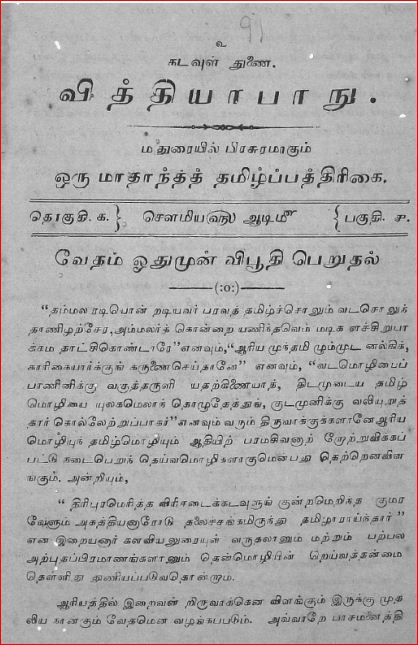 91
உ
கடவுள் துணை.
வித்தியாபாநு.
மதுரையில் பிரசுரமாகும்
ஒரு மாதாந்தத் தமிழ்ப்பத்திரிகை.
தொகுதி. க. } சௌமிய௵ ஆடி௴ { பகுதி. ச.
வேதம் ஓதுமுன் விபூதி பெறுதல்
——(:o:)——
“தம்மல ரடியொன் றடியவர் பரவத் தமிழ்ச்சொலும் வடசொலுந்
தாணிழற்சேர, அம்மலர்க் கொன்றை யணிந்தவெம் மடிக ளச்சிறுபா
க்கம தாட்சிகொண்டாரே” எனவும், “ஆரிய முந்தமி ழும்முட னல்கிக்,
காரிகையார்க்குங் கருணைசெய்தானே” எனவும், “வடமொழியைப்
பாணினிக்கு வகுத்தருளி யதற்கிணையாத், திடமுடைய தமிழ்
மொழியை யுலகமெலாந் தொழுதேத்துங், குடமுனிக்கு வலியுறுத்
தார் கொல்லேற்றுப்பாகர்” எனவும் வரும் திருவாக்குக்களானே ஆரிய
மொழியுந் தமிழ்மொழியும் ஆதியிற் பரமசிவனாற் றோற்றுவிக்கப்
பட்டு நடைபெறுந் தெய்வமொழிகளாகுமென்பது தெற்றெனவிள
ங்கும். அன்றியும்,
“ திரிபுரமெரித்த விரிசடைக்கடவுளுங் குன்றமெறிந்த குமர
வேளும் அகத்தியனாரோடு தலைச்சங்கமிருந்து தமிழாராய்ந்தார்”
என இறையனார் களவியலுரையுள் வருதலானும் மற்றும் பற்பல
அற்புதப்பிரமாணங்களானும் தென்மொழியின் றெய்வத்தன்மை
தெள்ளிது துணியப்படுவதொன்றாம்.
ஆரியத்தில் இறைவன் றிருவாக்கென விளங்கும் இருக்கு முத
லிய நான்கும் வேதமென வழங்கப்படும். அவ்வாறே பாசமனைத்தி